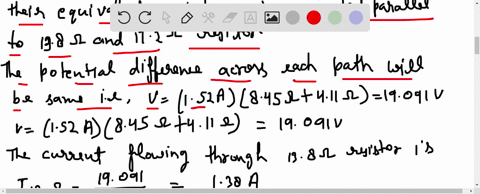 their equiva parallel
to 13.8 Ω and 17.2 Ω resistor
The potential difference across each path will
be same i.e, V = (1.52A)(8.45Ω+4.11Ω)=19.091V
V = (1.52 A)(8.45Ω+4.11Ω) = 19.091V
The current flowing through 13.8Ω resistor is
19.091 = 1.38 A